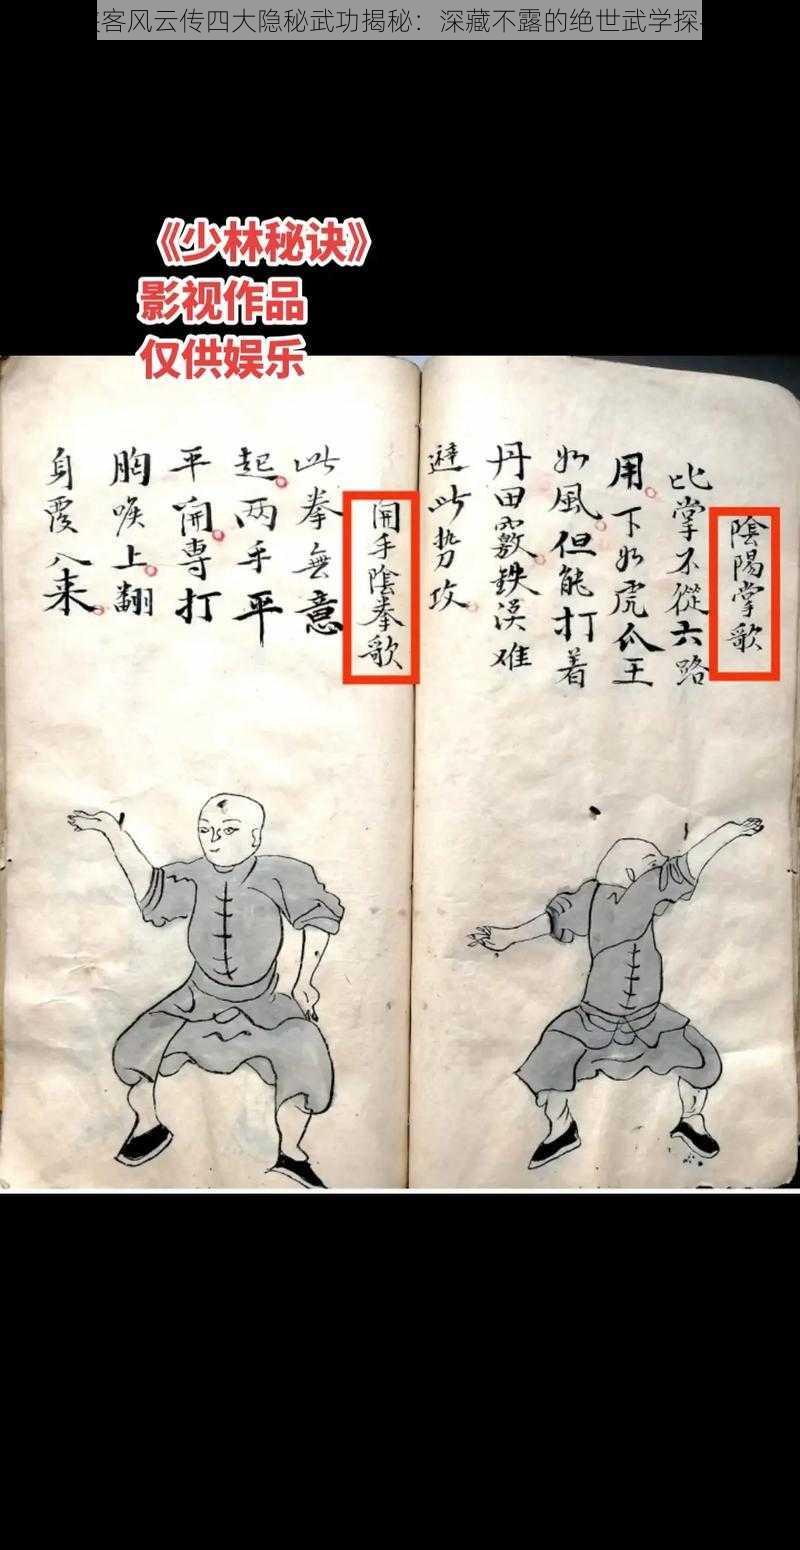 客风云传四大隐秘武功揭秘：深藏不露的绝世武学探
《少林秘诀》
影视作品
仅供娱乐
陰陽掌歌
此掌不從六路
用下如虎爪王
如風但能打着
丹田竅鉄漢难
避此势攻
開手陰拳歌
此拳無意
起两手平
平開專打
胸喉上翻
身覆入来